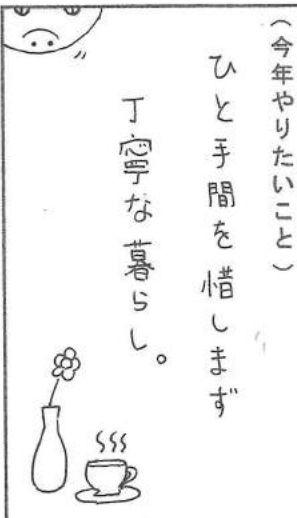 （今年やりたいこと）
ひと手間を惜しまず
丁寧な暮らし。